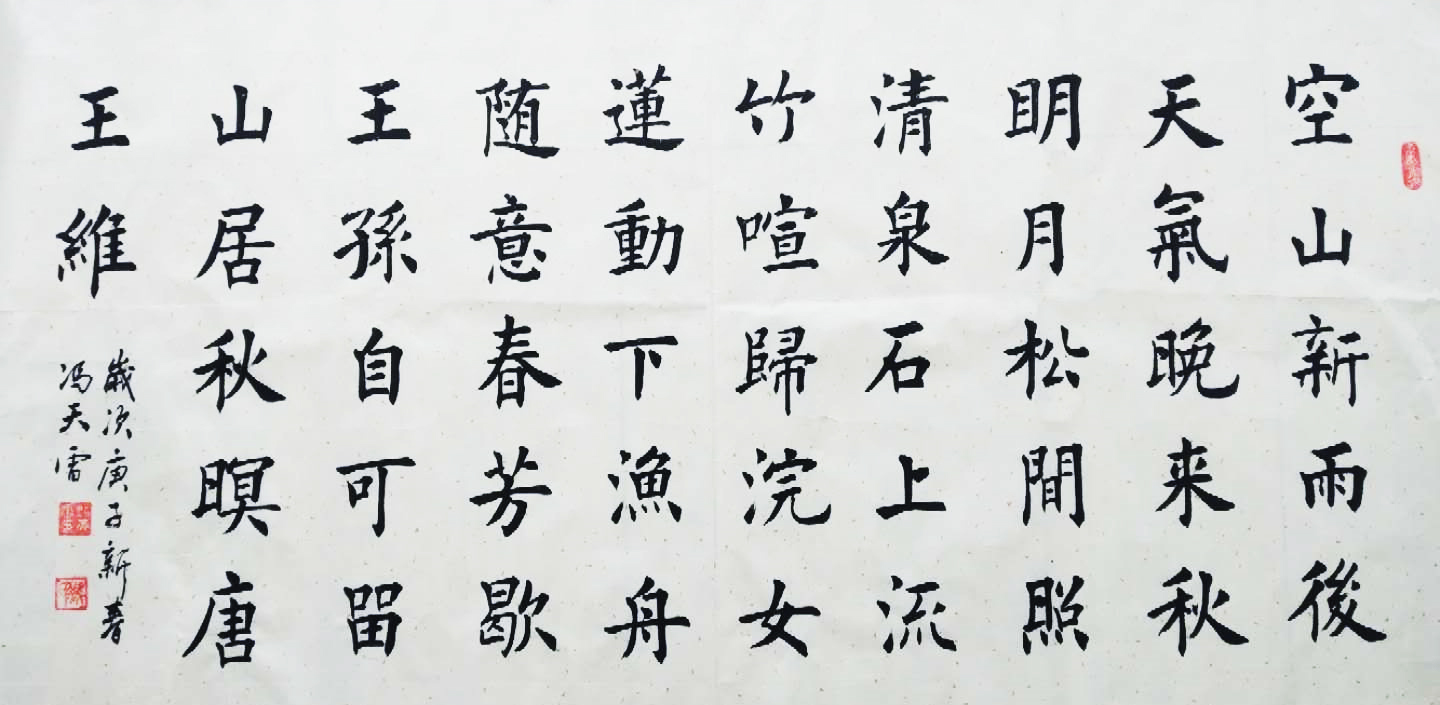 空山新雨後
天氣晚来秋
明月松間照
清泉石上流
竹喧歸浣女
蓮動下漁舟
随意春芳歇
王孫自可留
山居秋暝唐
王維
歲次庚子新春
冯天